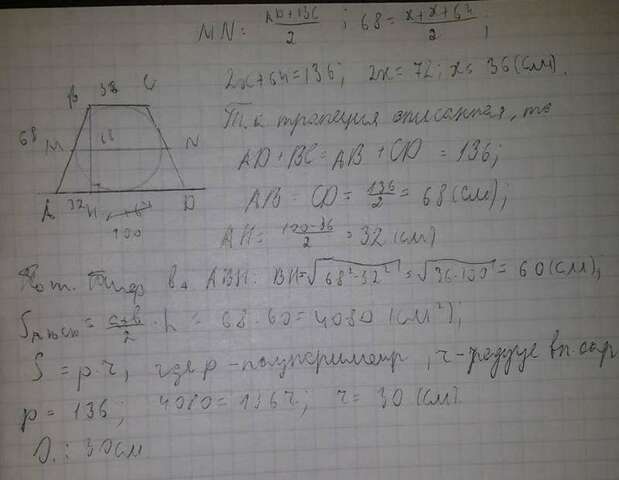 MN = (AD+BC)/2 ; 68 = (x+x+64)/2 ;
2x+64=136; 2x=72; x=36 (см).
B 38 C
68 M 68 N
A 32 H D
100
Т.к трапеция описанная, то
AD + BC = AB + CD = 136;
AB = CD = 136/2 = 68 (см);
AH = (100-36)/2 = 32 (см)
По т. Пифаг в ABH: BH=√(68²-32²)=√(36·100)=60 (см),
= (a+b)/2 · h = 68·60=4080 (см²);
S = p·r, где p - полупериметр, r - радиус вп. окр
p = 136; 4080=136r; r = 30 (см)
О.: 30см